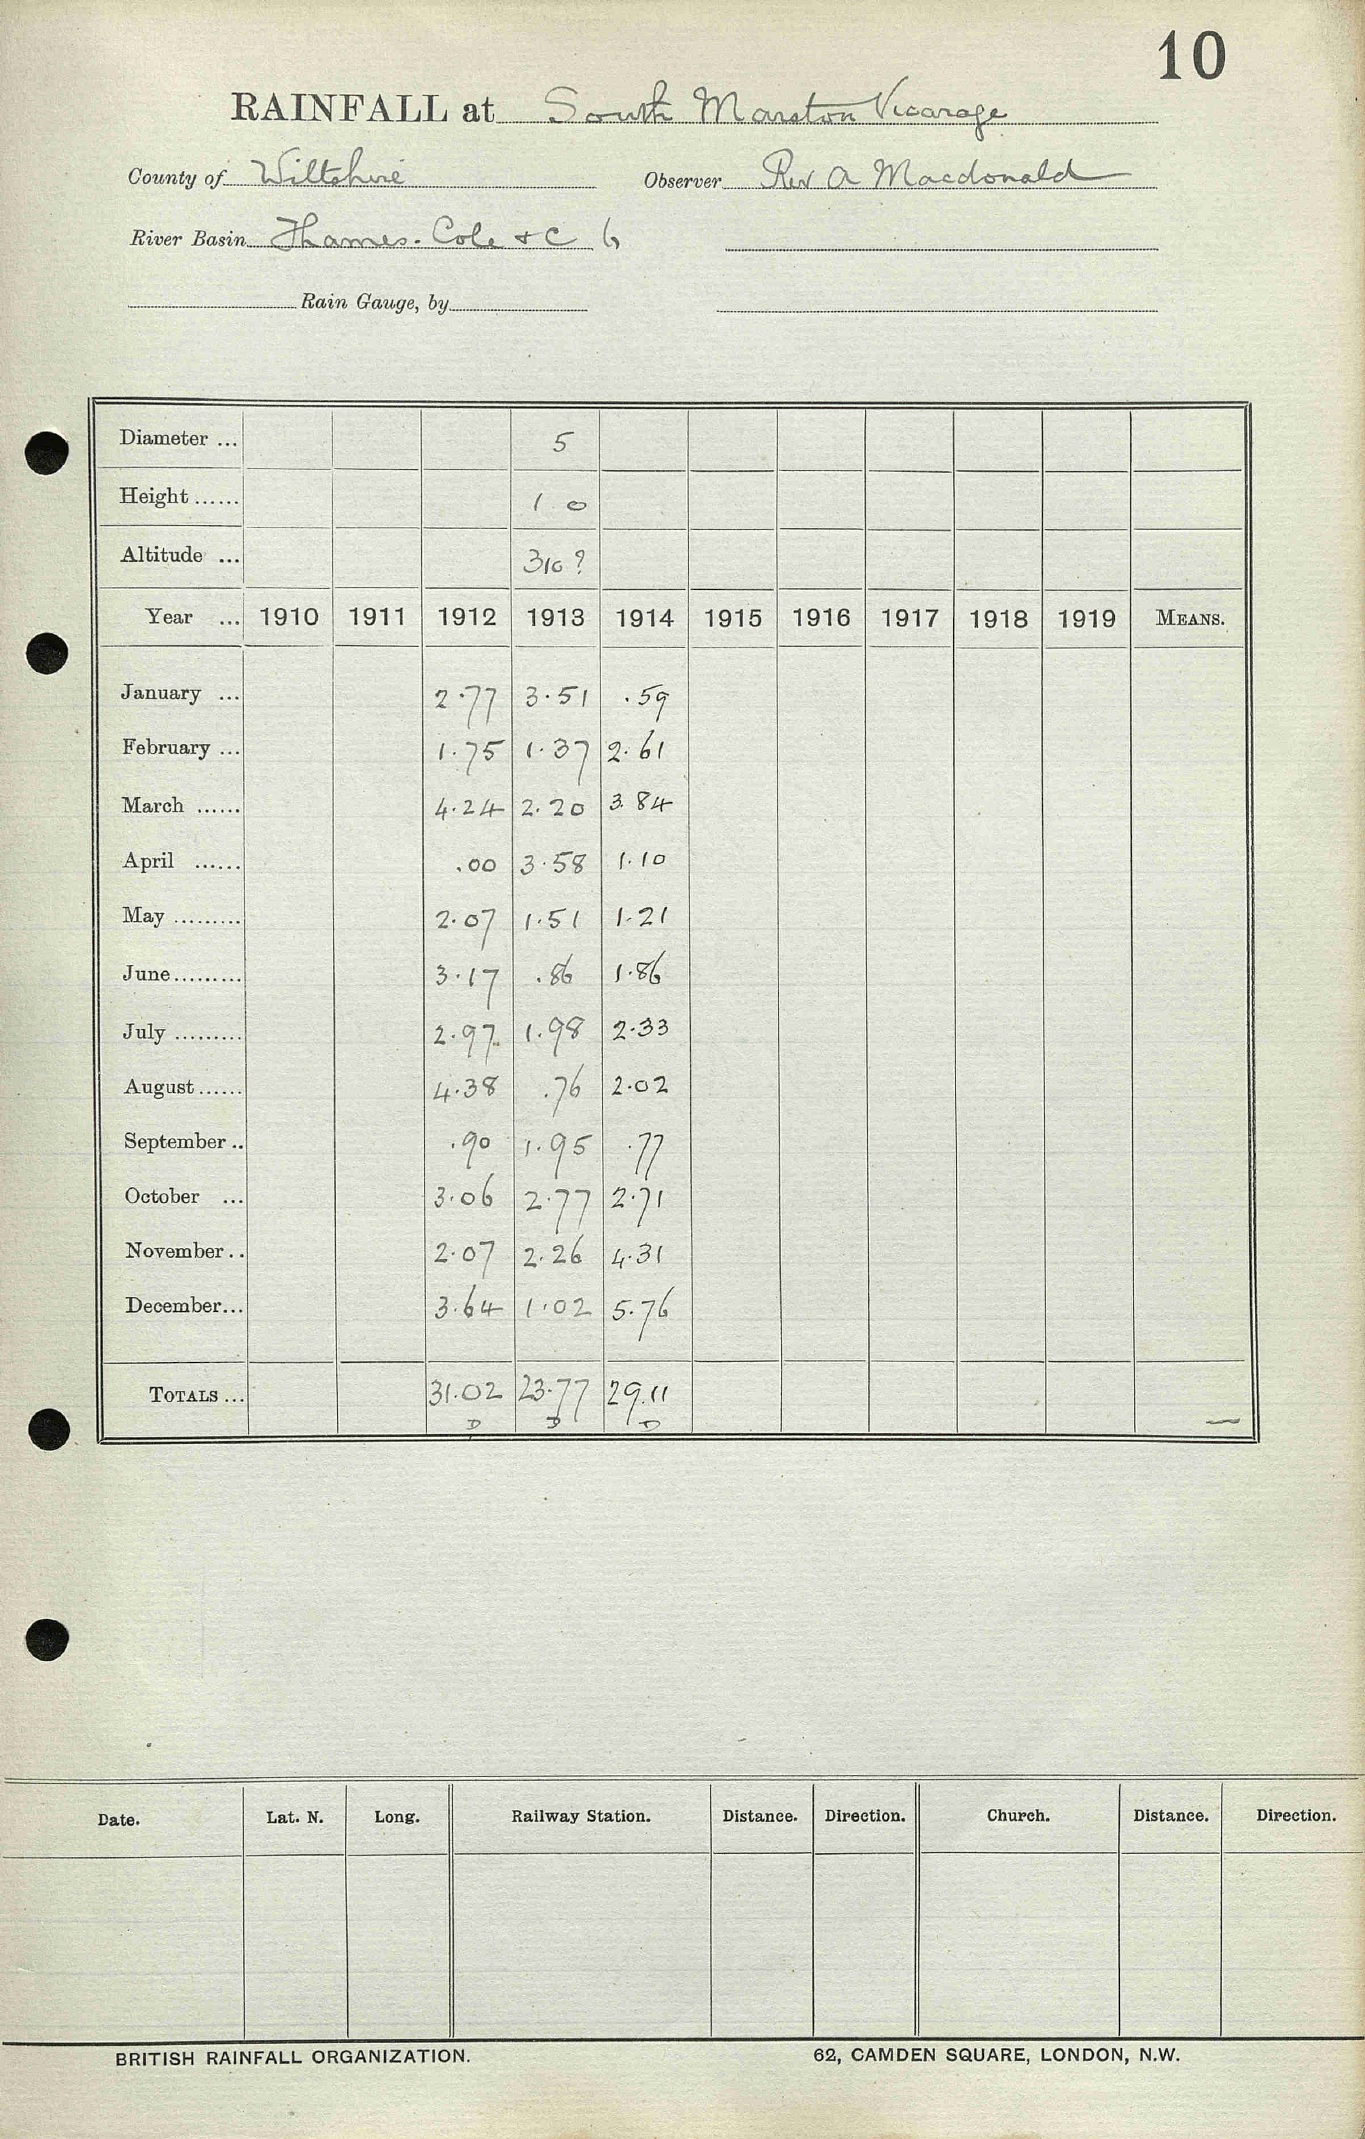 10
RAINFALL at South Marston Vicarage
County of Wiltshire Observer Rev A Macdonald
River Basin Thames. Cole & C 6
Rain Gauge, by
Diameter ... 5
Height ...... 1 0
Altitude ... 310?
Year ... 1910 1911 1912 1913 1914 1915 1916 1917 1918 1919 MEANS.
January ... 2.77 3.51 .59
February ... 1.75 1.37 2.61
March ...... 4.24 2.20 3.84
April ...... .00 3.58 1.10
May ......... 2.07 1.51 1.21
June ......... 3.17 .86 1.86
July ......... 2.97 1.98 2.33
August ...... 4.38 .76 2.02
September .. .90 1.95 .77
October ... 3.06 2.77 2.71
November .. 2.07 2.26 4.31
December ... 3.64 1.02 5.76
TOTALS ... 31.02 23.77 29.11
D D D
Date. Lat. N. Long. Railway Station. Distance. Direction. Church. Distance. Direction.
BRITISH RAINFALL ORGANIZATION. 62, CAMDEN SQUARE, LONDON, N.W.